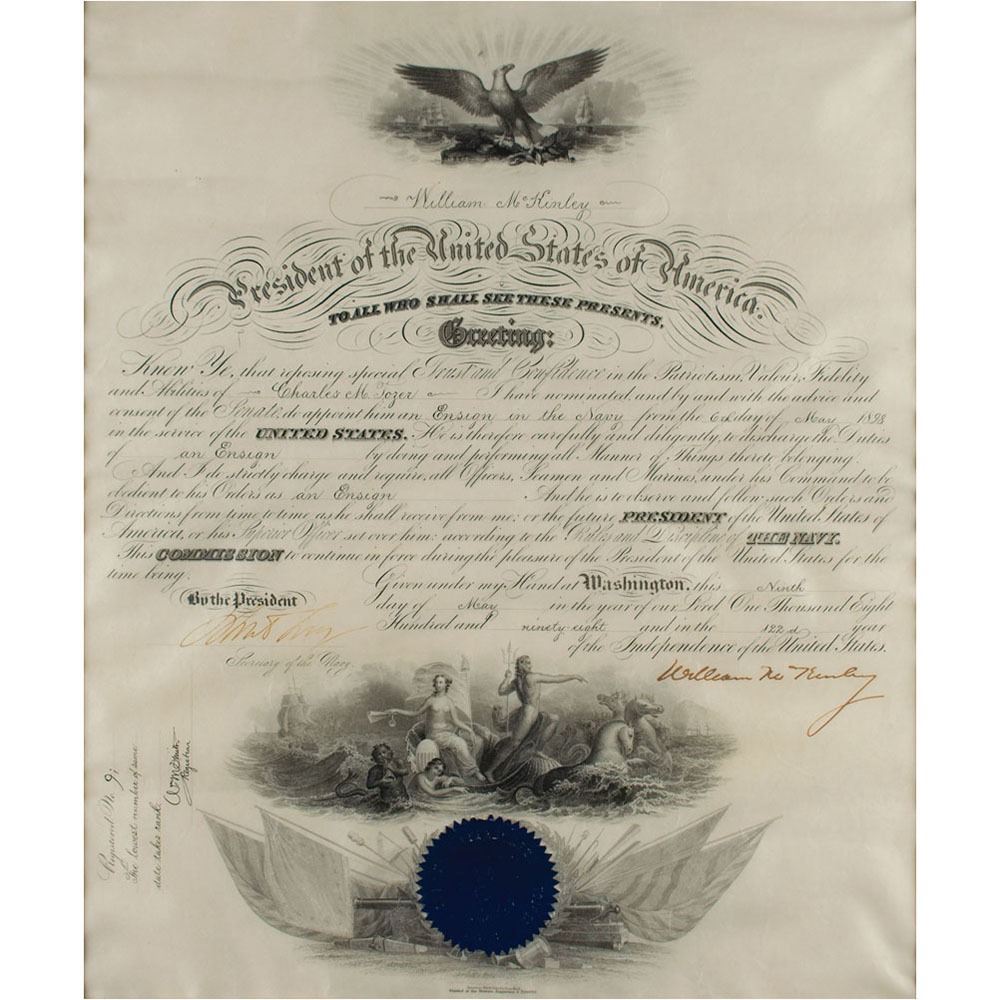 William McKinley
President of the United States of America.
TO ALL WHO SHALL SEE THESE PRESENTS,
Greeting:
Know Ye, that reposing special Trust and Confidence in the Patriotism, Valour, Fidelity
and Abilities of Charles M. Tozer I have nominated, and by and with the advice and
consent of the Senate, do appoint him an Ensign in the Navy from the 6th day of May 1898
in the service of the UNITED STATES. He is therefore carefully and diligently, to discharge the Duties
of an Ensign by doing and performing all Manner of Things thereto belonging.
And I do strictly charge and require, all Officers, Seamen and Marines, under his Command to be
obedient to his Orders as an Ensign And he is to observe and follow such Orders and
Directions from time to time as he shall receive from me; or the future PRESIDENT of the United States of
America, or his Superior Officer set over him: according to the Rules and Discipline of THE NAVY.
This COMMISSION to continue in force during the pleasure of the President of the United States for the
time being.
Given under my Hand at Washington, this Ninth
By the President
day of May in the year of our Lord One Thousand Eight
Hundred and ninety-eight and in the 122d year
of the Independence of the United States.
Secretary of the Navy.
William McKinley
Registered No. 9;
The lowest number of same
date takes rank.
Register